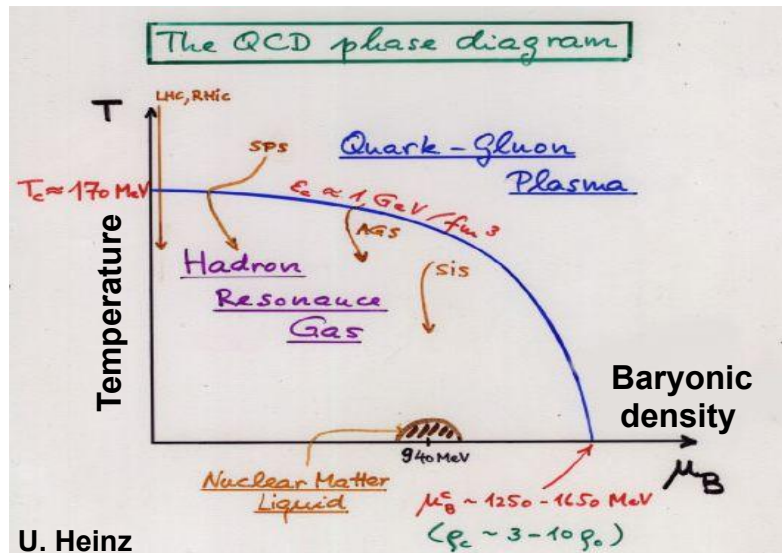 The QCD phase diagram
T
LHC, RHIC
SPS
Quark-Gluon
Plasma
Tc ≈ 170 MeV
εc ≈ 1 GeV/fm³
AGS
SIS
Hadron
Resonance
Gas
Temperature
Baryonic
density
940 MeV
μB
Nuclear Matter
Liquid
μB^c ~ 1250 - 1650 MeV
(ρc ~ 3-10 ρ₀)
U. Heinz